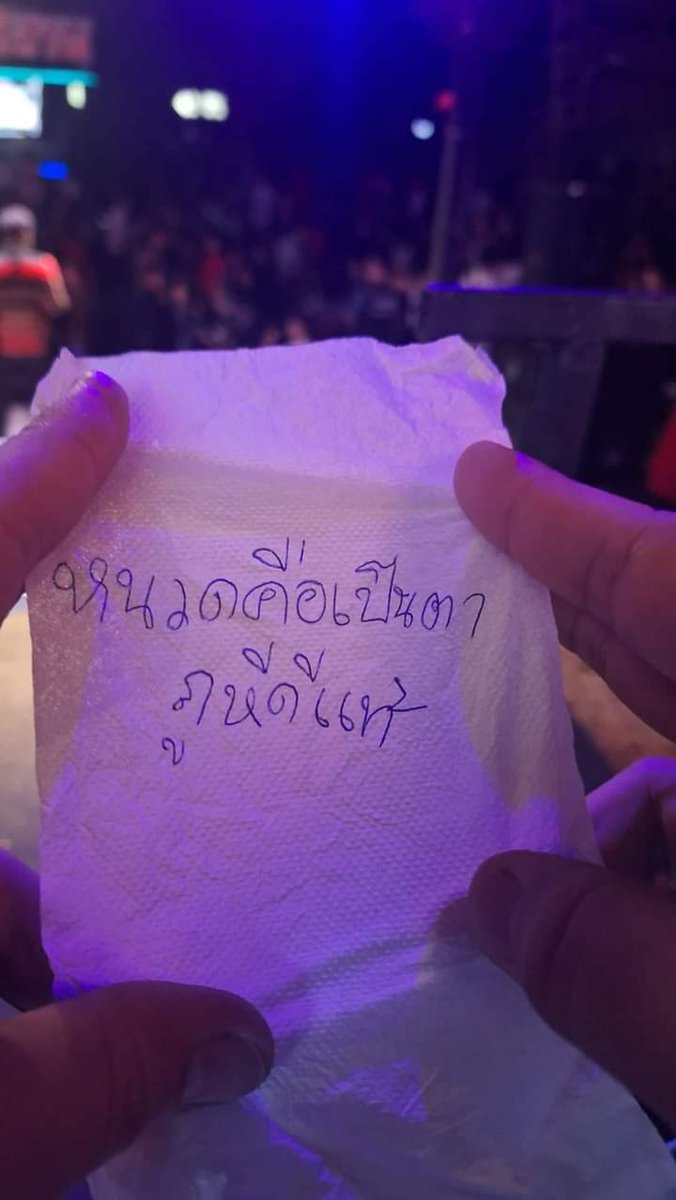 หนวดคือเป็นตา
ภูหีดีแท้